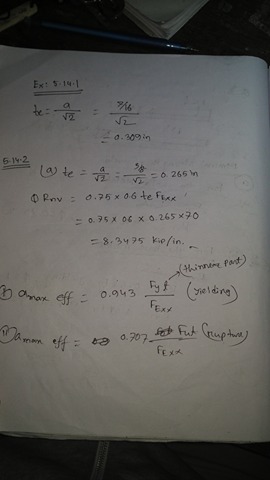 Ex: 5.14.1
te = a/√2 = 5/16/√2
= 0.309 in
5.14.2 (a) te = a/√2 = 3/8/√2 = 0.265 in
ΦRnv = 0.75 × 0.6 te FExx
= 0.75 × 0.6 × 0.265 × 70
= 8.3475 kip/in.
(thinner part)
(i) amax eff = 0.943 Fy t/FExx (yielding)
(ii) amax eff = 0.707 Fut/FExx (rupture)